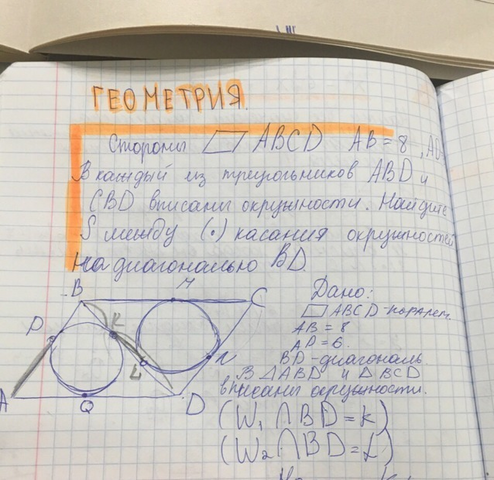 ГЕОМЕТРИЯ
Стороны ▱ ABCD AB = 8, AD
В каждый из треугольников ABD и
CBD вписаны окружности. Найдите
S между (·) касания окружностей
на диагональю BD.
B M C
P K L N
A Q D
Дано:
▱ ABCD-паралл.
AB = 8
AD = 6
BD-диагональ
В △ABD и △BCD
вписаны окружности.
(W₁ ∩ BD = K)
(W₂ ∩ BD = L)